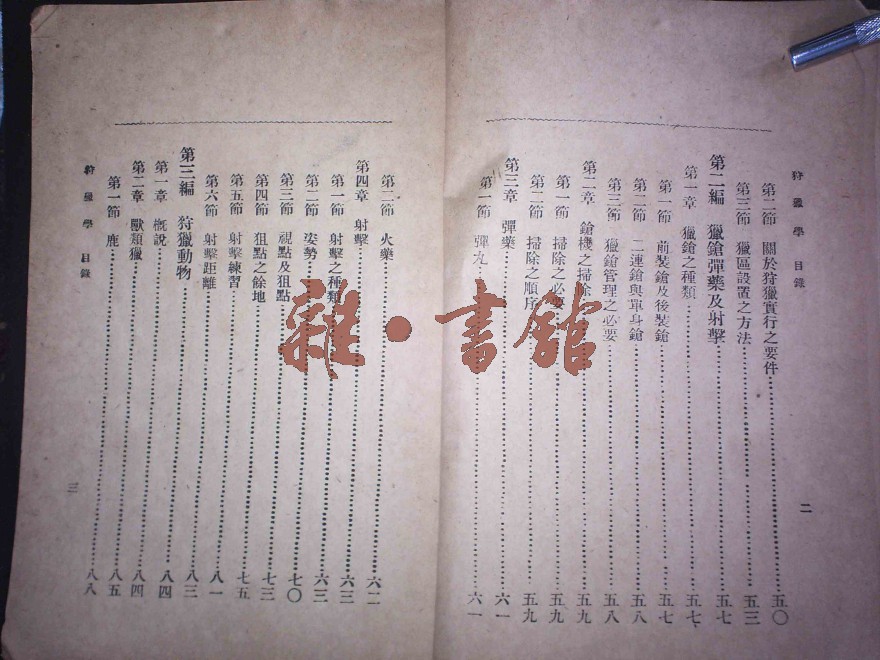 狩獵學 目錄 二
第二節 關於狩獵實行之要件……五〇
第三節 獵區設置之方法……五三
第二編 獵鎗彈藥及射擊……五七
第一章 獵鎗之種類……五七
第一節 前裝鎗及後裝鎗……五七
第二節 二連鎗與單身鎗……五八
第三節 獵鎗管理之必要……五八
第二章 鎗機之掃除……五九
第一節 掃除之必要……五九
第二節 掃除之順序……五九
第三章 彈藥……六一
第一節 彈丸……六一
第二節 火藥……六二
第四章 射擊……六三
第一節 射擊之種類……六三
第二節 姿勢……七〇
第三節 視點及狙點……七三
第四節 狙點之餘地……七五
第五節 射擊練習……八一
第六節 射擊距離……八三
第三編 狩獵動物……八四
第一章 概說……八四
第二章 獸類獵……八五
第一節 鹿……八八
狩獵學 目錄 三
雜·書館